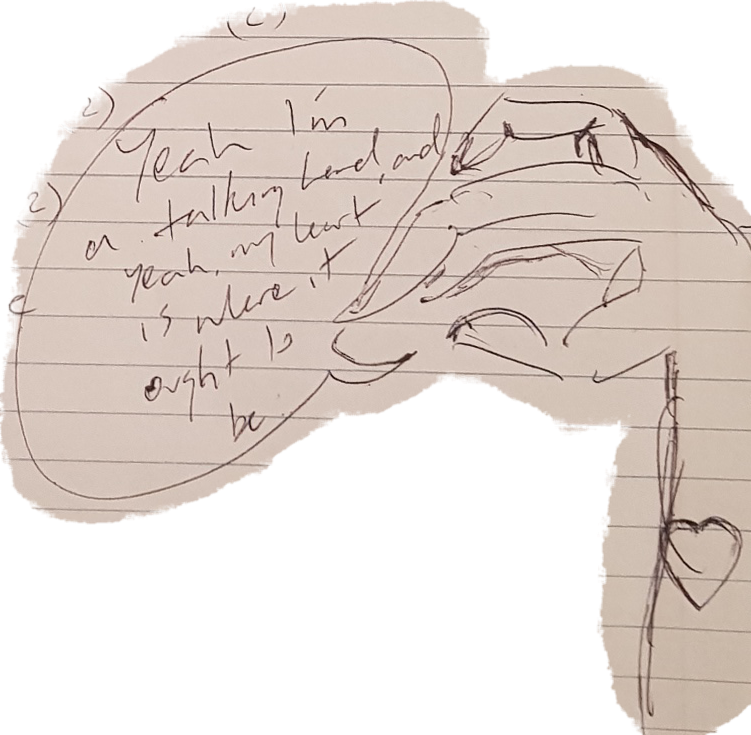 (c)
2)
2)
Yeah I'm
a talking hand, and
yeah, my heart
is where it
ought to
be